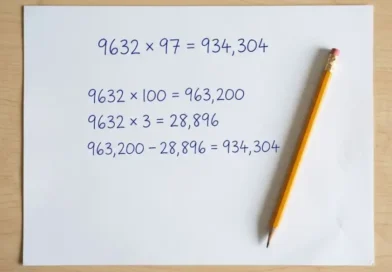 9632 × 97 = 934,304
9632 × 100 = 963,200
9632 × 3 = 28,896
963,200 − 28,896 = 934,304